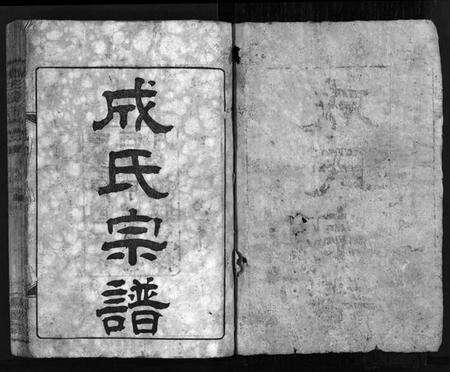 成氏宗譜